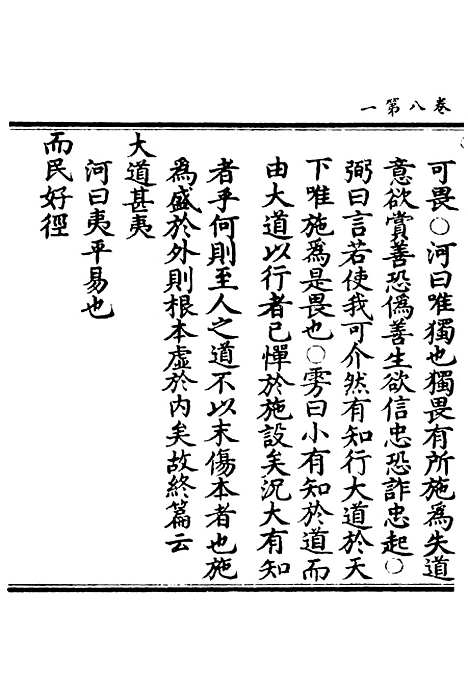 卷八第一
可畏○河曰唯獨也獨畏有所施為失道
意欲賞善恐偽善生欲信忠恐詐忠起○
弼曰言若使我可介然有知行大道於天
下唯施為是畏也○雱曰小有知於道而
由大道以行者已憚於施設矣況大有知
者乎何則至人之道不以末傷本者也施
為盛於外則根本虛於內矣故終篇云
大道甚夷
河曰夷平易也
而民好徑